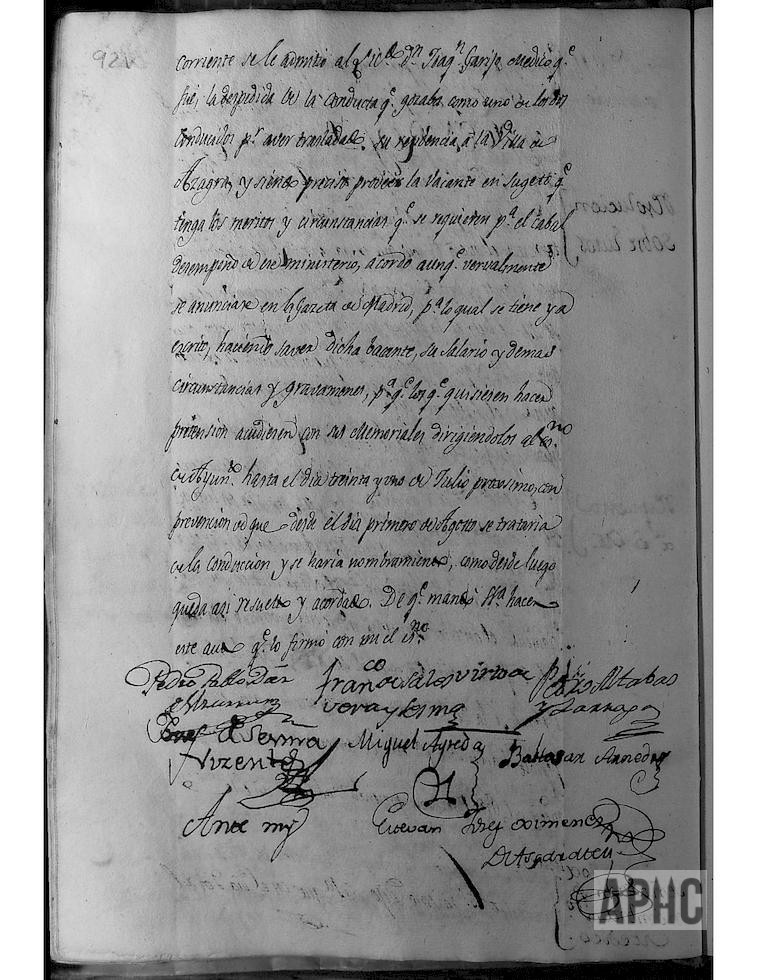 corriente se le admitio al Lic.do Dn Joaq.n Garijo Medico q.e
fue, la despedida de la conducta q.e gozaba como uno de los dos
conducidos p.r aver trasladado su residencia a la Villa de
Azagra, y siendo preciso proveer la vacante en sugetto q.e
tenga los meritos y circunstancias q.e se requieren p.a el cabal
desempeño de ese ministerio, acordo aunq.e vervalmente
se anunciase en la Gazeta de Madrid, p.a lo qual se tiene ya
escrito, haciendo saver dicha bacante, su salario y demas
circunstancias y gravamenes, p.a q.e los q.e quisiesen hacer
pretension acudiesen con sus Memoriales dirigiendolos al es.no
de Ayun.to hasta el dia treinta y uno de Julio proximo, con
prevencion de que desde el dia primero de Agosto se trataria
de la conduccion y se haria nombramiento, como desde luego
queda asi resuelto y acordado. De q.e mando S.Sa. hacer
este auto q.e lo firmó con mi el es.no
Pedro Pablo Franco Sales Pedro Altabas
vera y lesma y Zarrapa
Josef de Serma Miguel Ayreda Baltasar
Vizente
Ante my Estevan Josef Ximenez
APHC